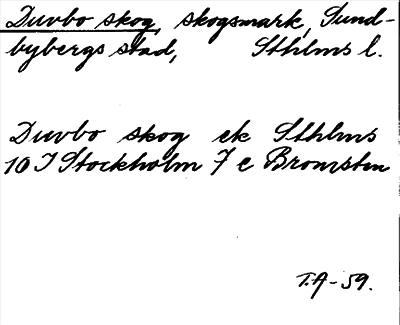 Duvbo skog, skogsmark, Sund-
bybergs stad, Sthlms l.
Duvbo skog ek Sthlms
10 I Stockholm 7 c Bromsten
T.A-59.